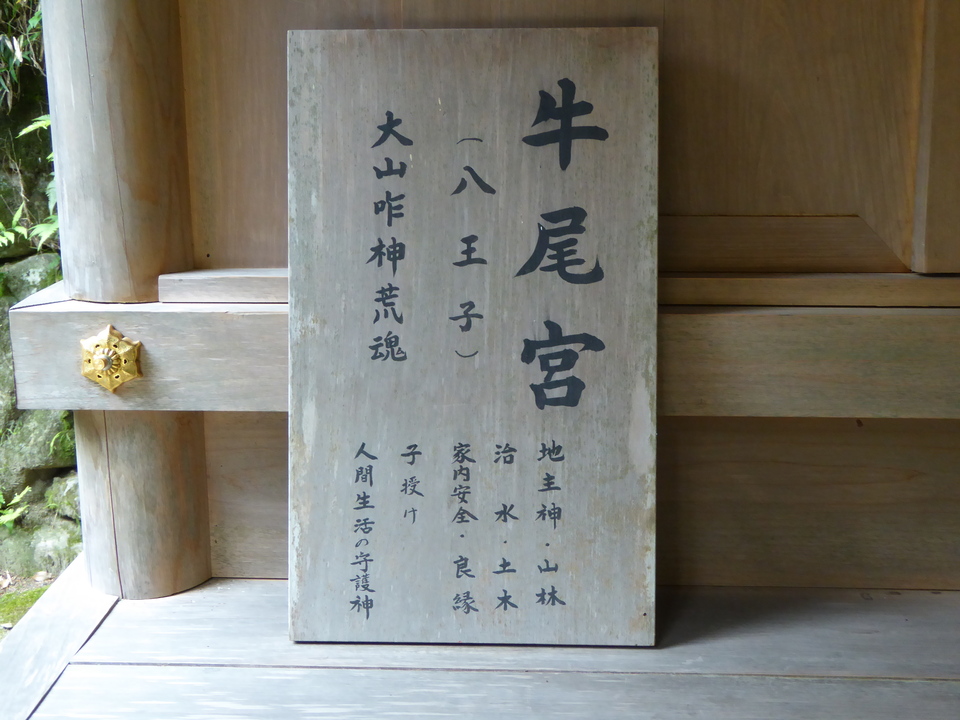 牛尾宮
（八王子）
大山咋神荒魂
地主神・山林
治水・土木
家内安全・良縁
子授け
人間生活の守護神